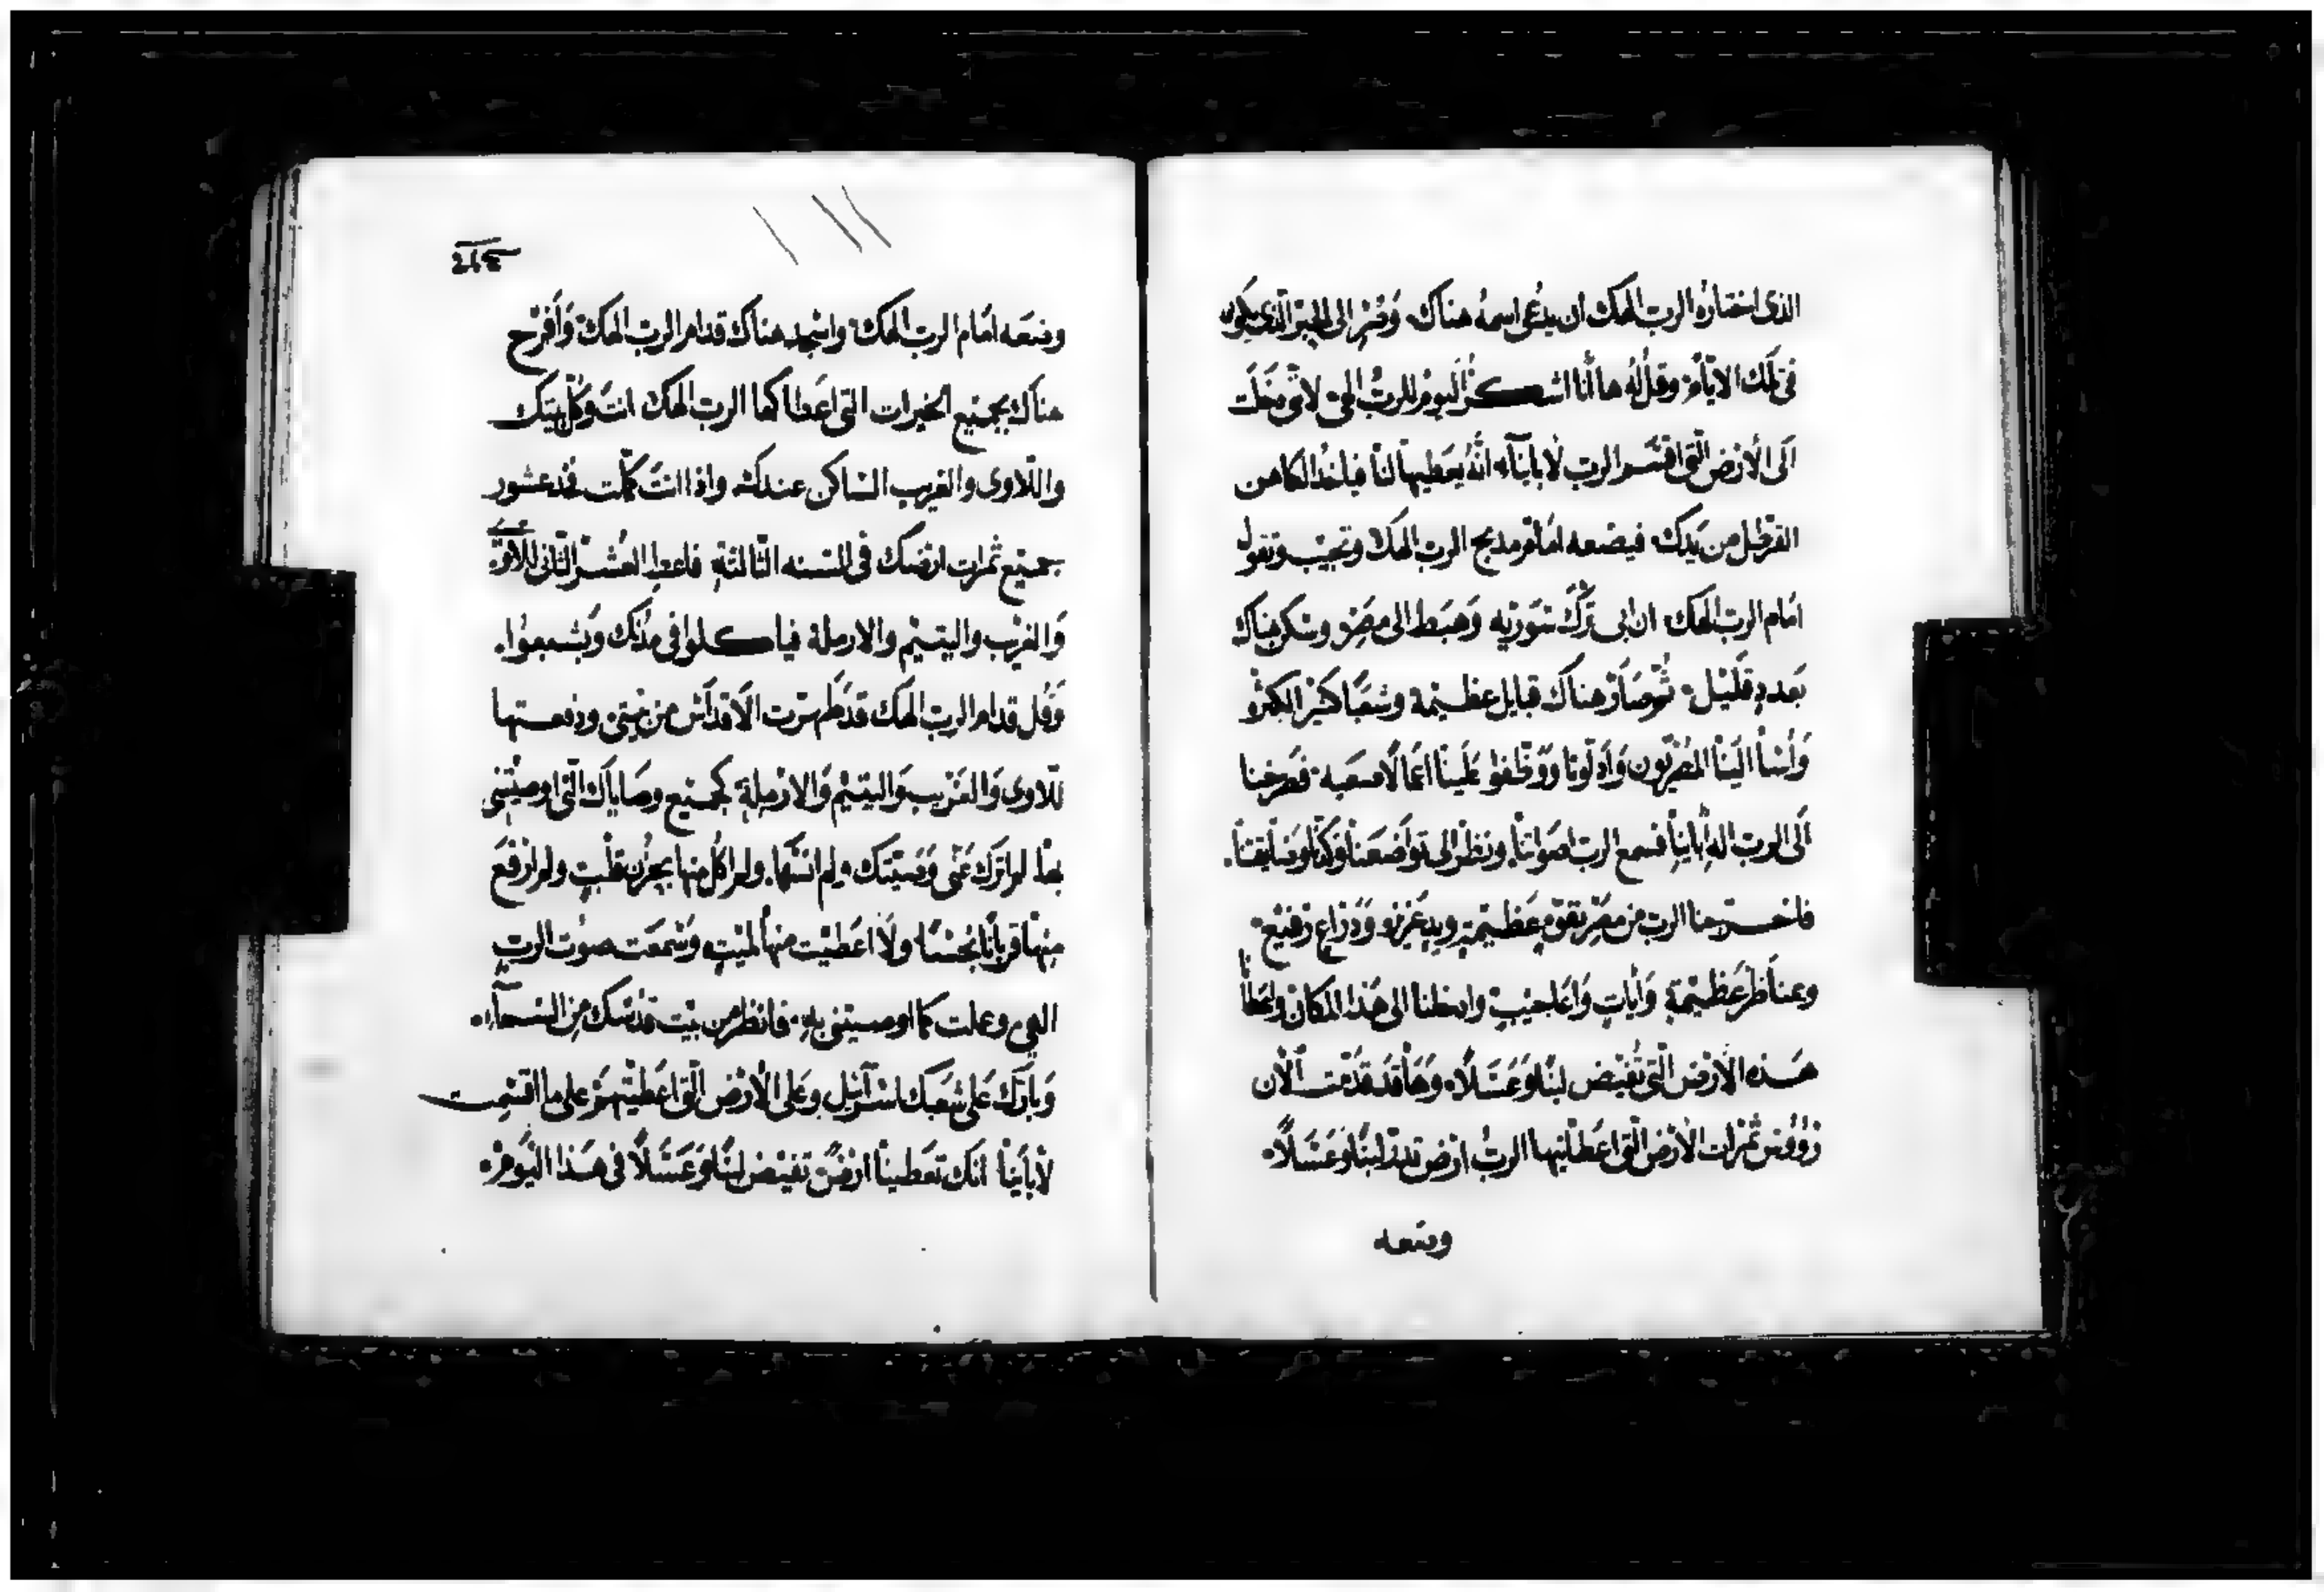 الذى اختاره الرب الهك ان يدعى اسمه هناك وَسِر الى الحبر الذى يكون
فى تلك الايام وقل له ها انا اشكر اليوم للرب الهى لانى دخلت
الى الارض التى اقسم الرب لاباينا انه يعطيها لنا فياخذ الكاهن
القرطل من يدك فيضعه امام مدبح الرب الهك وتجيب وتقول
امام الرب الهك ان ابى ترك سوريه وهبط الى مصر وسكن هناك
بعدد قليل ثم صار هناك قبايل عظيمة وشعبا كثير الكثره
وَأسا الينا المصريون وَاذلونا ووظفوا علينا اعمالا صعبه فصرخنا
الى الرب اله ابائنا فسمع الرب اصواتنا ونظر الى تواضعنا وكدنا وضايقنا
فاخرجنا الرب من مصر بقوة عظيمة ويد عزيزه وذراع رفيع
وبمناظر عظيمة وَايات وَاعاجيب وادخلنا الى هذا المكان واعطانا
هذه الارض التى تفيض لبنا وعسلا وها قد قدمت الان
رؤوس ثمرات الارض التى اعطانيها الرب ارض تدر لبنا وعسلا
وضعه
وضعه امام الرب الهك واسجد هناك قدام الرب الهك وَافرح
هناك بجميع الخيرات التى اعطاكها الرب الهك انت وكل بيتك
واللاوى والغريب الساكن عندك واذا انت كملت قد عشور
جميع ثمرات ارضك فى السنه الثالثة فاعط العشر الثانى للاوى
وَالغريب واليتيم والارملة فياكلوا فى مدنك ويشبعوا
وَقل قدام الرب الهك قد طهرت الاقداس من بيتى ودفعتها
للاوى وَالغريب وَاليتيم وَالارملة كجميع وصاياك التى اوصيتنى
بها لم اترك عنى وصيتك ولم انسها ولم اكل منها بحزن قلب ولم ارفع
منها قربانا نجسا ولا اعطيت منها لميت وسمعت صوت الرب
الهى وعملت كما اوصيتنى به فانظر من بيت قدسك من السماء
وَبارك على شعبك اسرائيل وعلى الارض التى اعطيتهم على ما اقسمت
لابائنا انك تعطينا ارض تفيض لبنا وعسلا فى هذا اليوم